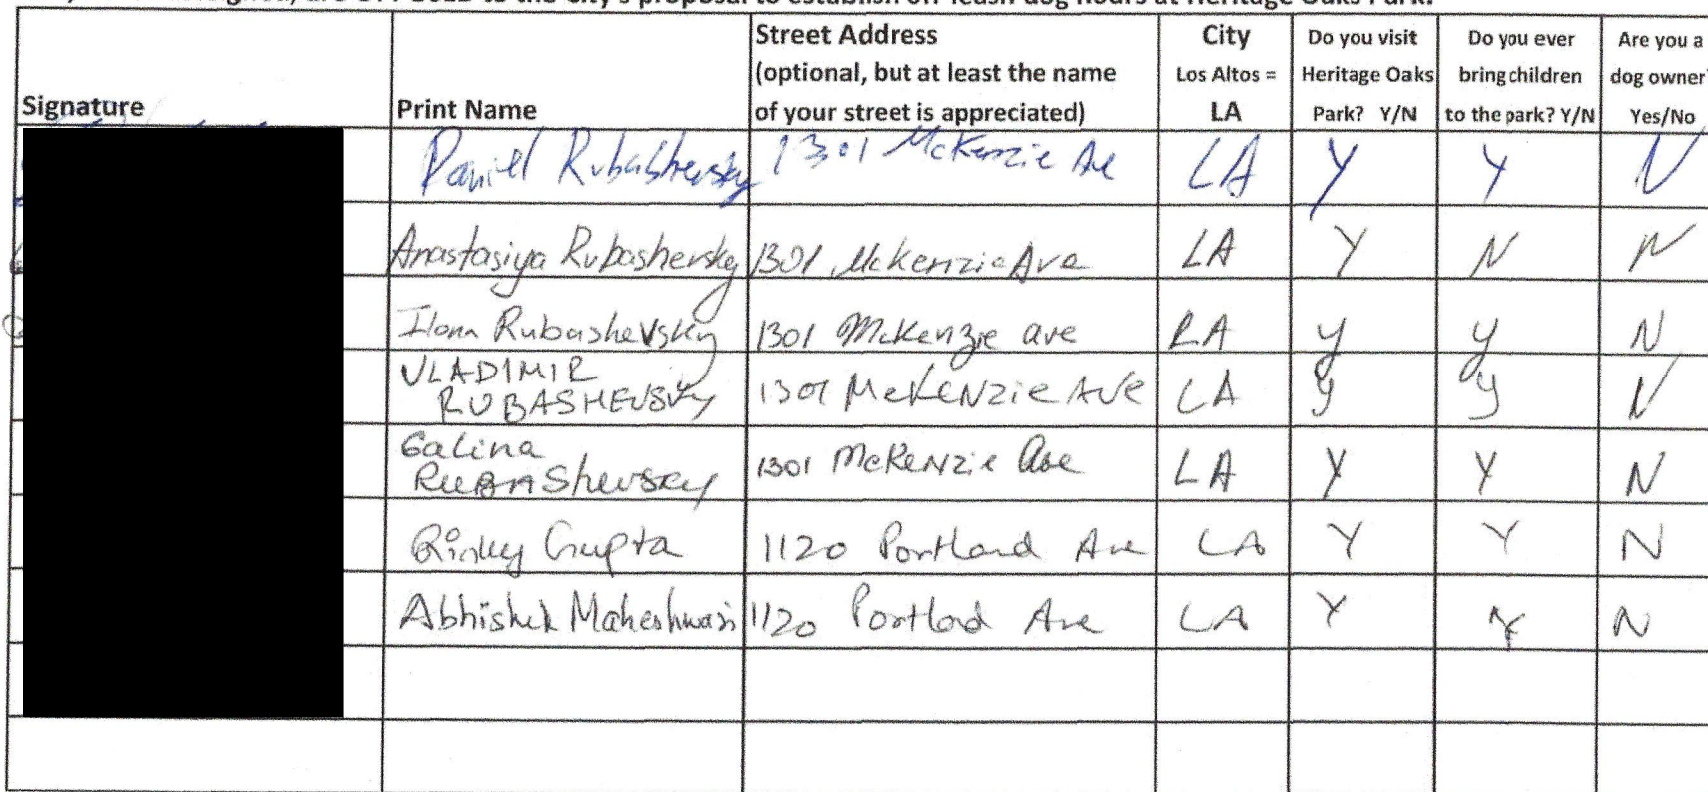 OPPOSED to the City's proposal to establish off-leash dog hours at Heritage Oaks Park.
Signature Print Name Street Address (optional, but at least the name of your street is appreciated) City Los Altos = LA Do you visit Heritage Oaks Park? Y/N Do you ever bring children to the park? Y/N Are you a dog owner? Yes/No
Daniel Rubashevsky 1301 McKenzie Ave LA Y Y N
Anastasiya Rubashevsky 1301 McKenzie Ave LA Y N N
Ilona Rubashevsky 1301 McKenzie ave LA y y N
VLADIMIR RUBASHEVSKY 1301 McKENzie AVE LA y y N
Galina RUBAShevsky 1301 McKeNzie Ave LA Y Y N
Gupta 1120 Portland Ave LA Y Y N
Abhishek Maheshwari 1120 Portlad Ave LA Y Y N